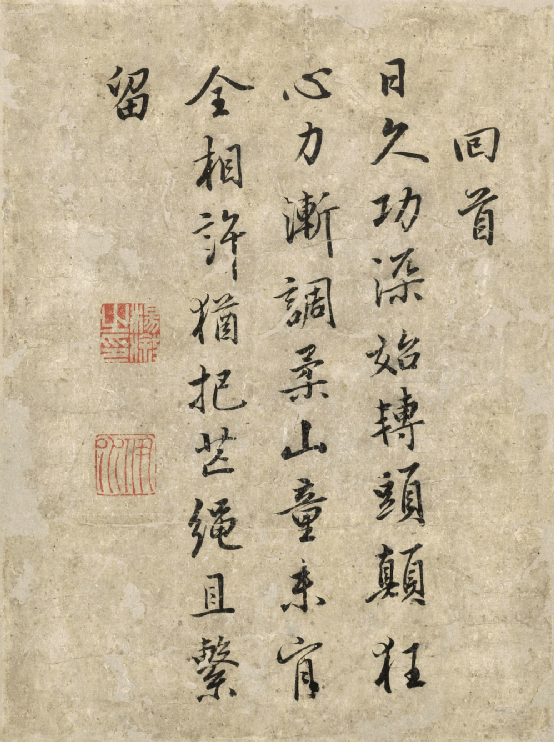 回首
日久功深始轉頭顛狂
心力漸調柔山童未肯
全相許猶把芒繩且繫
留